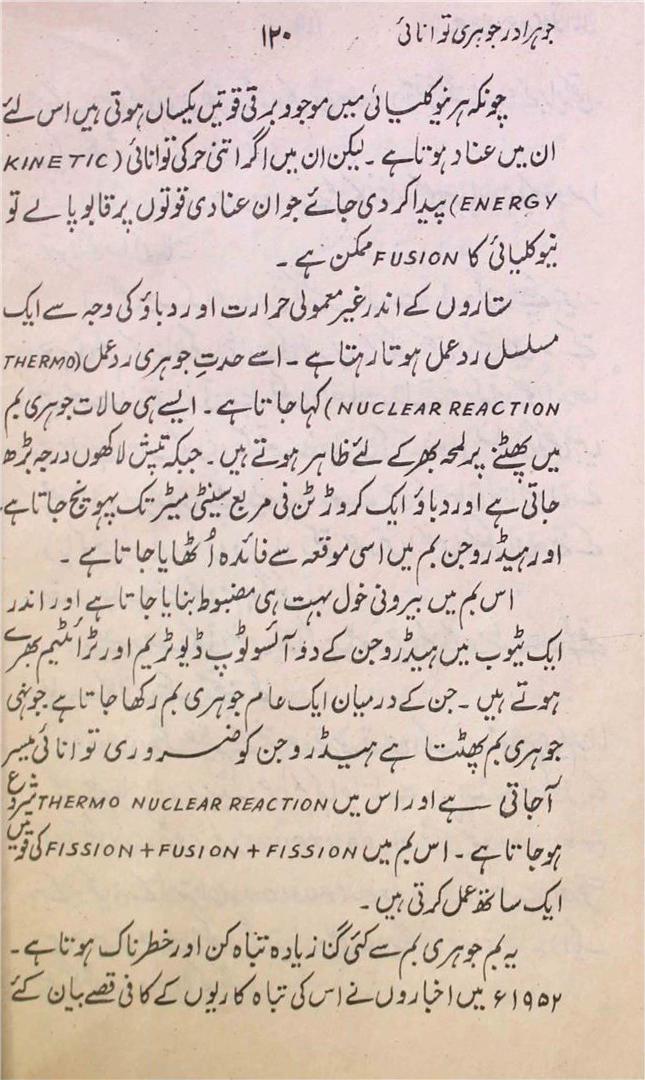 جوہر اور جوہری توانائی ۱۲۰
چونکہ ہر نیوکلیائی میں موجود برقی قوتیں یکساں ہوتی ہیں اس لئے
ان میں عناد ہوتا ہے ۔ لیکن ان میں اگر اتنی حرکی توانائی (KINETIC
ENERGY) پیدا کر دی جائے جو ان عنادی قوتوں پر قابو پا لے تو
نیوکلیائی کا FUSION ممکن ہے ۔
ستاروں کے اندر غیر معمولی حرارت اور دباؤ کی وجہ سے ایک
مسلسل ردعمل ہوتا رہتا ہے ۔ اسے حدتِ جوہری ردعمل (THERMO
NUCLEAR REACTION) کہا جاتا ہے ۔ ایسے ہی حالات جوہری بم
میں پھٹنے پر لمحہ بھر کے لئے ظاہر ہوتے ہیں ۔ جبکہ تپش لاکھوں درجہ بڑھ
جاتی ہے اور دباؤ ایک کروڑ ٹن فی مربع سینٹی میٹر تک پہونچ جاتا ہے ۔
اور ہیڈروجن بم میں اسی موقعہ سے فائدہ اُٹھایا جاتا ہے ۔
اس بم میں بیرونی خول بہت ہی مضبوط بنایا جاتا ہے اور اندر
ایک ٹیوب میں ہیڈروجن کے دو آئسوٹوپ ڈیوٹریم اور ٹرائٹیم بھرے
ہوتے ہیں ۔ جن کے درمیان ایک عام جوہری بم رکھا جاتا ہے جونہی
جوہری بم پھٹتا ہے ہیڈروجن کو ضروری توانائی میسر
آجاتی ہے اور اس میں THERMO NUCLEAR REACTION شروع
ہو جاتا ہے ۔ اس بم میں FISSION + FUSION + FISSION کی قوتیں
ایک ساتھ عمل کرتی ہیں ۔
یہ بم جوہری بم سے کئی گنا زیادہ تباہ کن اور خطرناک ہوتا ہے ۔
۱۹۵۲ء میں اخباروں نے اس کی تباہ کاریوں کے کافی قصے بیان کئے